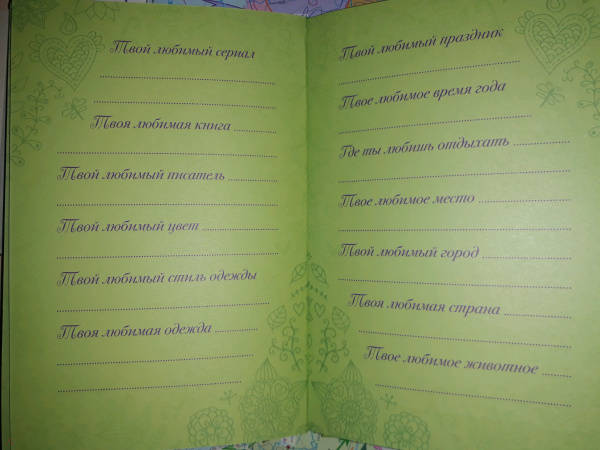 Твой любимый сериал
Твоя любимая книга
Твой любимый писатель
Твой любимый цвет
Твой любимый стиль одежды
Твоя любимая одежда
Твой любимый праздник
Твое любимое время года
Где ты любишь отдыхать
Твое любимое место
Твой любимый город
Твоя любимая страна
Твое любимое животное